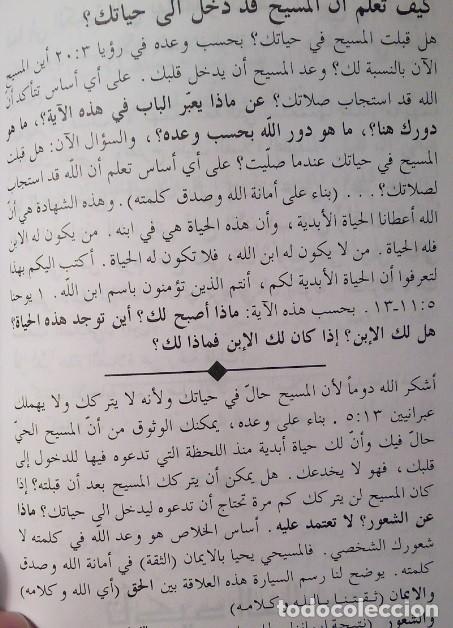 كيف تعلم أن المسيح قد دخل الى حياتك؟
هل قبلت المسيح في حياتك؟ بحسب وعده في رؤيا ٣:٢٠ أين المسيح
الآن بالنسبة لك؟ وعد المسيح أن يدخل قلبك. على أي أساس تتأكد أن
الله قد استجاب صلاتك؟ عن ماذا يعبّر الباب في هذه الآية؟، ما هو
دورك هنا؟، ما هو دور الله بحسب وعده؟، والسؤال الآن: هل قبلت
المسيح في حياتك عندما صلّيت؟ على أي أساس تعلم أن الله قد استجاب
لصلاتك؟... (بناء على أمانة الله وصدق كلمته). وهذه الشهادة هي أنّ
الله أعطانا الحياة الأبدية، وأن هذه الحياة هي في ابنه. من يكون له الابن
فله الحياة. من لا يكون له ابن الله، فلا تكون له الحياة. أكتب اليكم بهذا
لتعرفوا أن الحياة الأبدية لكم، أنتم الذين تؤمنون باسم ابن الله. ١ يوحنا
٥:١١-١٣. بحسب هذه الآية: ماذا أصبح لك؟ أين توجد هذه الحياة؟
هل لك الإبن؟ إذا كان لك الإبن فماذا لك؟
أشكر الله دوماً لأن المسيح حالّ في حياتك ولأنه لا يتركك ولا يهملك
عبرانيين ١٣:٥. بناء على وعده، يمكنك الوثوق من أنّ المسيح الحيّ
حالّ فيك وأنّ لك حياة أبدية منذ اللحظة التي تدعوه فيها للدخول إلى
قلبك، فهو لا يخدعك. هل يمكن أن يتركك المسيح بعد أن قبلته؟ إذا
كان المسيح لن يتركك كم مرة تحتاج أن تدعوه ليدخل الى حياتك؟ ماذا
عن الشعور؟ لا تعتمد عليه. أساس الخلاص هو وعد الله في كلمته لا
شعورك الشخصي. فالمسيحي يحيا بالايمان (الثقة) في أمانة الله وصدق
كلمته. يوضح لنا رسم السيارة هذه العلاقة بين الحق (أي الله وكلامه)
والايمان (ثقتنا بالله وكلامه)
والشعور (نتيجة
todocoleccion